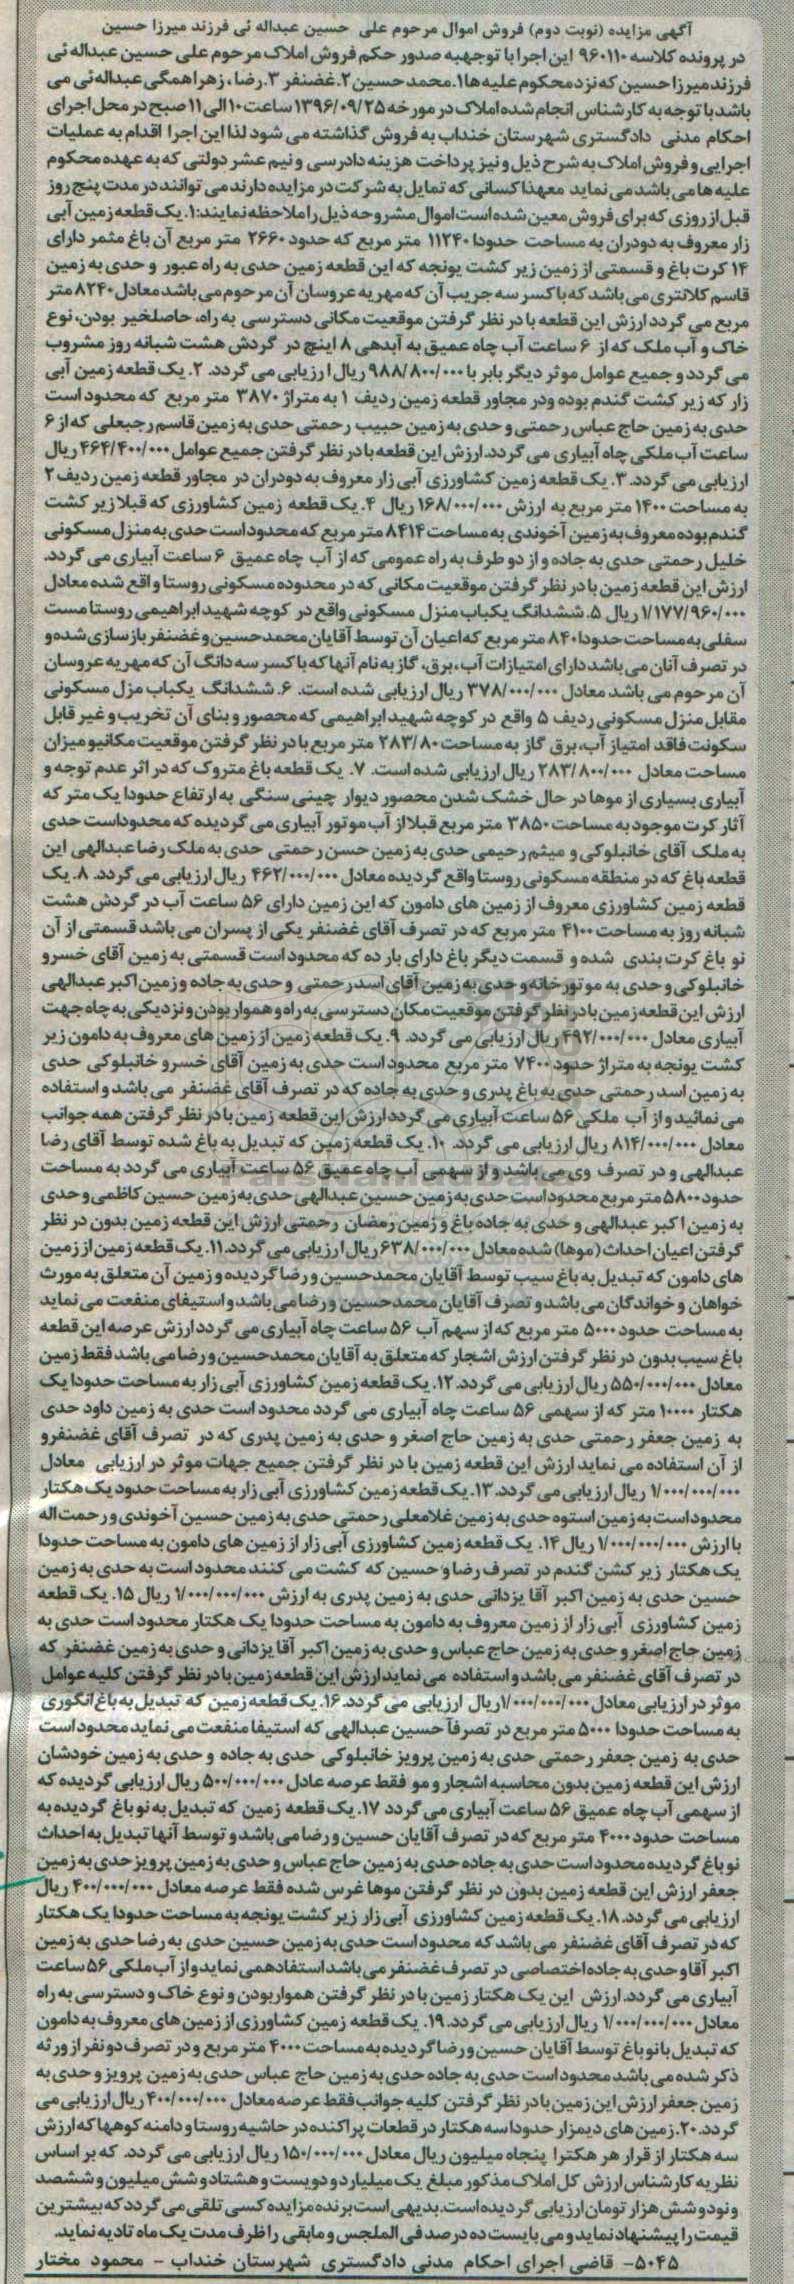 آگهی مزایده (نوبت دوم) فروش اموال مرحوم علی حسین عبداله ئی فرزند میرزا حسین
در پرونده کلاسه ۹۶۰۱۱۰ این اجرا با توجه به صدور حکم فروش املاک مرحوم علی حسین عبداله ئی
فرزند میرزا حسین که نزد محکوم علیه ها ۱. محمد حسین ۲. غضنفر ۳. رضا، زهرا همگی عبداله ئی می
باشد با توجه به کارشناس انجام شده املاک در مورخه ۱۳۹۶/۰۹/۲۵ ساعت ۱۰ الی ۱۱ صبح در محل اجرای
احکام مدنی دادگستری شهرستان خنداب به فروش گذاشته می شود لذا این اجرا اقدام به عملیات
اجرایی و فروش املاک به شرح ذیل و نیز پرداخت هزینه دادرسی و نیم عشر دولتی که به عهده محکوم
علیه ها می باشد می نماید معهذا کسانی که تمایل به شرکت در مزایده دارند می توانند در مدت پنج روز
قبل از روزی که برای فروش معین شده است اموال مشروحه ذیل را ملاحظه نمایند: ۱. یک قطعه زمین آبی
زار معروف به دودران به مساحت حدودا ۱۱۲۴۰ متر مربع که حدود ۲۶۶۰ متر مربع آن باغ مثمر دارای
۱۴ کرت باغ و قسمتی از زمین زیر کشت یونجه که این قطعه زمین حدی به راه عبور و حدی به زمین
قاسم کلانتری می باشد که با کسر سه جریب آن که مهریه عروسان آن مرحوم می باشد معادل ۸۲۴۰ متر
مربع می گردد ارزش این قطعه با در نظر گرفتن موقعیت مکانی دسترسی به راه، حاصلخیر بودن، نوع
خاک و آب ملک که از ۶ ساعت آب چاه عمیق به آبدهی ۸ اینچ در گردش هشت شبانه روز مشروب
می گردد و جمیع عوامل موثر دیگر بابر با ۹۸۸/۸۰۰/۰۰۰ ریال ارزیابی می گردد. ۲. یک قطعه زمین آبی
زار که زیر کشت گندم بوده ودر مجاور قطعه زمین ردیف ۱ به متراژ ۳۸۷۰ متر مربع که محدود است
حدی به زمین حاج عباس رحمتی و حدی به زمین حبیب رحمتی حدی به زمین قاسم رجبعلی که از ۶
ساعت آب ملکی چاه آبیاری می گردد. ارزش این قطعه با در نظر گرفتن جمیع عوامل ۴۶۴/۴۰۰/۰۰۰ ریال
ارزیابی می گردد. ۳. یک قطعه زمین کشاورزی آبی زار معروف به دودران در مجاور قطعه زمین ردیف ۲
به مساحت ۱۴۰۰ متر مربع به ارزش ۱۶۸/۰۰۰/۰۰۰ ریال ۴. یک قطعه زمین کشاورزی که قبلا زیر کشت
گندم بوده معروف به زمین آخوندی به مساحت ۸۴۱۴ متر مربع که محدود است حدی به منزل مسکونی
خلیل رحمتی حدی به جاده و از دو طرف به راه عمومی که از آب چاه عمیق ۶ ساعت آبیاری می گردد.
ارزش این قطعه زمین با در نظر گرفتن موقعیت مکانی که در محدوده مسکونی روستا واقع شده معادل
۱/۱۷۷/۹۶۰/۰۰۰ ریال ۵. ششدانگ یکباب منزل مسکونی واقع در کوچه شهید ابراهیمی روستا مست
سفلی به مساحت حدودا ۸۴۰ متر مربع که اعیان آن توسط آقایان محمد حسین و غضنفر بازسازی شده و
در تصرف آنان می باشد دارای امتیازات آب، برق، گاز به نام آنها که با کسر سه دانگ آن که مهریه عروسان
آن مرحوم می باشد معادل ۳۷۸/۰۰۰/۰۰۰ ریال ارزیابی شده است. ۶. ششدانگ یکباب مزل مسکونی
مقابل منزل مسکونی ردیف ۵ واقع در کوچه شهید ابراهیمی که محصور و بنای آن تخریب و غیر قابل
سکونت فاقد امتیاز آب، برق گاز به مساحت ۲۸۳/۸۰ متر مربع با در نظر گرفتن موقعیت مکانیو میزان
مساحت معادل ۲۸۳/۸۰۰/۰۰۰ ریال ارزیابی شده است. ۷. یک قطعه باغ متروک که در اثر عدم توجه و
آبیاری بسیاری از موها در حال خشک شدن محصور دیوار چینی سنگی به ارتفاع حدودا یک متر که
آثار کرت موجود به مساحت ۳۸۵۰ متر مربع قبلا از آب موتور آبیاری می گردیده که محدود است حدی
به ملک آقای خانبلوکی و میثم رحیمی حدی به زمین حسن رحمتی حدی به ملک رضا عبدالهی این
قطعه باغ که در منطقه مسکونی روستا واقع گردیده معادل ۴۶۲/۰۰۰/۰۰۰ ریال ارزیابی می گردد. ۸. یک
قطعه زمین کشاورزی معروف از زمین های دامون که این زمین دارای ۵۶ ساعت آب در گردش هشت
شبانه روز به مساحت ۴۱۰۰ متر مربع که در تصرف آقای غضنفر یکی از پسران می باشد قسمتی از آن
نو باغ کرت بندی شده و قسمت دیگر باغ دارای بار ده که محدود است قسمتی به زمین آقای خسرو
خانبلوکی و حدی به موتورخانه و حدی به زمین آقای اسد رحمتی و حدی به جاده و زمین اکبر عبدالهی
ارزش این قطعه زمین با در نظر گرفتن موقعیت مکان دسترسی به راه و هموار بودن و نزدیکی به چاه جهت
آبیاری معادل ۴۹۲/۰۰۰/۰۰۰ ریال ارزیابی می گردد. ۹. یک قطعه زمین از زمین های معروف به دامون زیر
کشت یونجه به متراژ حدود ۷۴۰۰ متر مربع محدود است حدی به زمین آقای خسرو خانبلوکی حدی
به زمین اسد رحمتی حدی به باغ پدری و حدی به جاده که در تصرف آقای غضنفر می باشد و استفاده
می نمائید و از آب ملکی ۵۶ ساعت آبیاری می گردد ارزش این قطعه زمین با در نظر گرفتن همه جوانب
معادل ۸۱۴/۰۰۰/۰۰۰ ریال ارزیابی می گردد. ۱۰. یک قطعه زمین که تبدیل به باغ شده توسط آقای رضا
عبدالهی و در تصرف وی می باشد و از سهمی آب چاه عمیق ۵۶ ساعت آبیاری می گردد به مساحت
حدود ۵۸۰۰ متر مربع محدود است حدی به زمین حسین عبدالهی حدی به زمین حسین کاظمی و حدی
به زمین اکبر عبدالهی و حدی به جاده باغ و زمین رمضان رحمتی ارزش این قطعه زمین بدون در نظر
گرفتن اعیان احداث (موها) شده معادل ۶۳۸/۰۰۰/۰۰۰ ریال ارزیابی می گردد. ۱۱. یک قطعه زمین از زمین
های دامون که تبدیل به باغ سیب توسط آقایان محمد حسین و رضا گردیده و زمین آن متعلق به مورث
خواهان و خواندگان می باشد و تصرف آقایان محمد حسین و رضا می باشد و استیفای منفعت می نماید
به مساحت حدود ۵۰۰۰ متر مربع که از سهم آب ۵۶ ساعت چاه آبیاری می گردد ارزش عرصه این قطعه
باغ سیب بدون در نظر گرفتن ارزش اشجار که متعلق به آقایان محمد حسین و رضا می باشد فقط زمین
معادل ۵۵۰/۰۰۰/۰۰۰ ریال ارزیابی می گردد. ۱۲. یک قطعه زمین کشاورزی آبی زار به مساحت حدودا یک
هکتار ۱۰۰۰۰ متر که از سهمی ۵۶ ساعت چاه آبیاری می گردد محدود است حدی به زمین داود حدی
به زمین جعفر رحمتی حدی به زمین حاج اصغر و حدی به زمین پدری که در تصرف آقای غضنفرو
از آن استفاده می نماید ارزش این قطعه زمین با در نظر گرفتن جمیع جهات موثر در ارزیابی معادل
۱/۰۰۰/۰۰۰/۰۰۰ ریال ارزیابی می گردد. ۱۳. یک قطعه زمین کشاورزی آبی زار به مساحت حدود یک هکتار
محدود است به زمین استوه حدی به زمین غلامعلی رحمتی حدی به زمین حسین آخوندی و رحمت اله
با ارزش ۱/۰۰۰/۰۰۰/۰۰۰ ریال ۱۴. یک قطعه زمین کشاورزی آبی زار از زمین های دامون به مساحت حدودا
یک هکتار زیر کشن گندم در تصرف رضا و حسین که کشت می کنند محدود است به حدی به زمین
حسین حدی به زمین اکبر آقا یزدانی حدی به زمین پدری به ارزش ۱/۰۰۰/۰۰۰/۰۰۰ ریال ۱۵. یک قطعه
زمین کشاورزی آبی زار از زمین معروف به دامون به مساحت حدودا یک هکتار محدود است حدی به
زمین حاج اصغر و حدی به زمین حاج عباس و حدی به زمین اکبر آقا یزدانی و حدی به زمین غضنفر که
در تصرف آقای غضنفر می باشد و استفاده می نماید ارزش این قطعه زمین با در نظر گرفتن کلیه عوامل
موثر در ارزیابی معادل ۱/۰۰۰/۰۰۰/۰۰۰ ریال ارزیابی می گردد. ۱۶. یک قطعه زمین که تبدیل به باغ انگوری
به مساحت حدودا ۵۰۰۰ متر مربع در تصرف آ حسین عبدالهی که استیفا منفعت می نماید محدود است
حدی به زمین جعفر رحمتی حدی به زمین پرویز خانبلوکی حدی به جاده و حدی به زمین خودشان
ارزش این قطعه زمین بدون محاسبه اشجار و مو فقط عرصه عادل ۵۰۰/۰۰۰/۰۰۰ ریال ارزیابی گردیده که
از سهمی آب چاه عمیق ۵۶ ساعت آبیاری می گردد ۱۷. یک قطعه زمین که تبدیل به نو باغ گردیده به
مساحت حدود ۴۰۰۰ متر مربع که در تصرف آقایان حسین و رضا می باشد و توسط آنها تبدیل به احداث
نو باغ گردیده محدود است حدی به جاده حدی به زمین حاج عباس و حدی به زمین پرویز حدی به زمین
جعفر ارزش این قطعه زمین بدون در نظر گرفتن موها غرس شده فقط عرصه معادل ۴۰۰/۰۰۰/۰۰۰ ریال
ارزیابی می گردد. ۱۸. یک قطعه زمین کشاورزی آبی زار زیر کشت یونجه به مساحت حدودا یک هکتار
که در تصرف آقای غضنفر می باشد که محدود است حدی به زمین حسین حدی به رضا حدی به زمین
اکبر آقا و حدی به جاده اختصاصی در تصرف غضنفر می باشد استفاده می نماید و از آب ملکی ۵۶ ساعت
آبیاری می گردد. ارزش این یک هکتار زمین با در نظر گرفتن هموار بودن و نوع خاک و دسترسی به راه
معادل ۱/۰۰۰/۰۰۰/۰۰۰ ریال ارزیابی می گردد. ۱۹. یک قطعه زمین کشاورزی از زمین های معروف به دامون
که تبدیل با نو باغ توسط آقایان حسین و رضا گردیده به مساحت ۴۰۰۰ متر مربع و در تصرف دو نفر از ورثه
ذکر شده می باشد محدود است حدی به جاده حدی به زمین حاج عباس حدی به زمین پرویز و حدی به
زمین جعفر ارزش این زمین با در نظر گرفتن کلیه جوانب فقط عرصه معادل ۴۰۰/۰۰۰/۰۰۰ ریال ارزیابی می
گردد. ۲۰. زمین های دیمزار حدودا سه هکتار در قطعات پراکنده در حاشیه روستا و دامنه کوهها که ارزش
سه هکتار از قرار هر هکترا پنجاه میلیون ریال معادل ۱۵۰/۰۰۰/۰۰۰ ریال ارزیابی می گردد. که بر اساس
نظریه کارشناس ارزش کل املاک مذکور مبلغ یک میلیارد و دویست و هشتاد و شش میلیون و ششصد
و نود و شش هزار تومان ارزیابی گردیده است. بدیهی است برنده مزایده کسی تلقی می گردد که بیشترین
قیمت را پیشنهاد نماید و می بایست ده درصد فی الملجس و مابقی را ظرف مدت یک ماه تادیه نماید.
۵۰۴۵- قاضی اجرای احکام مدنی دادگستری شهرستان خنداب - محمود مختار